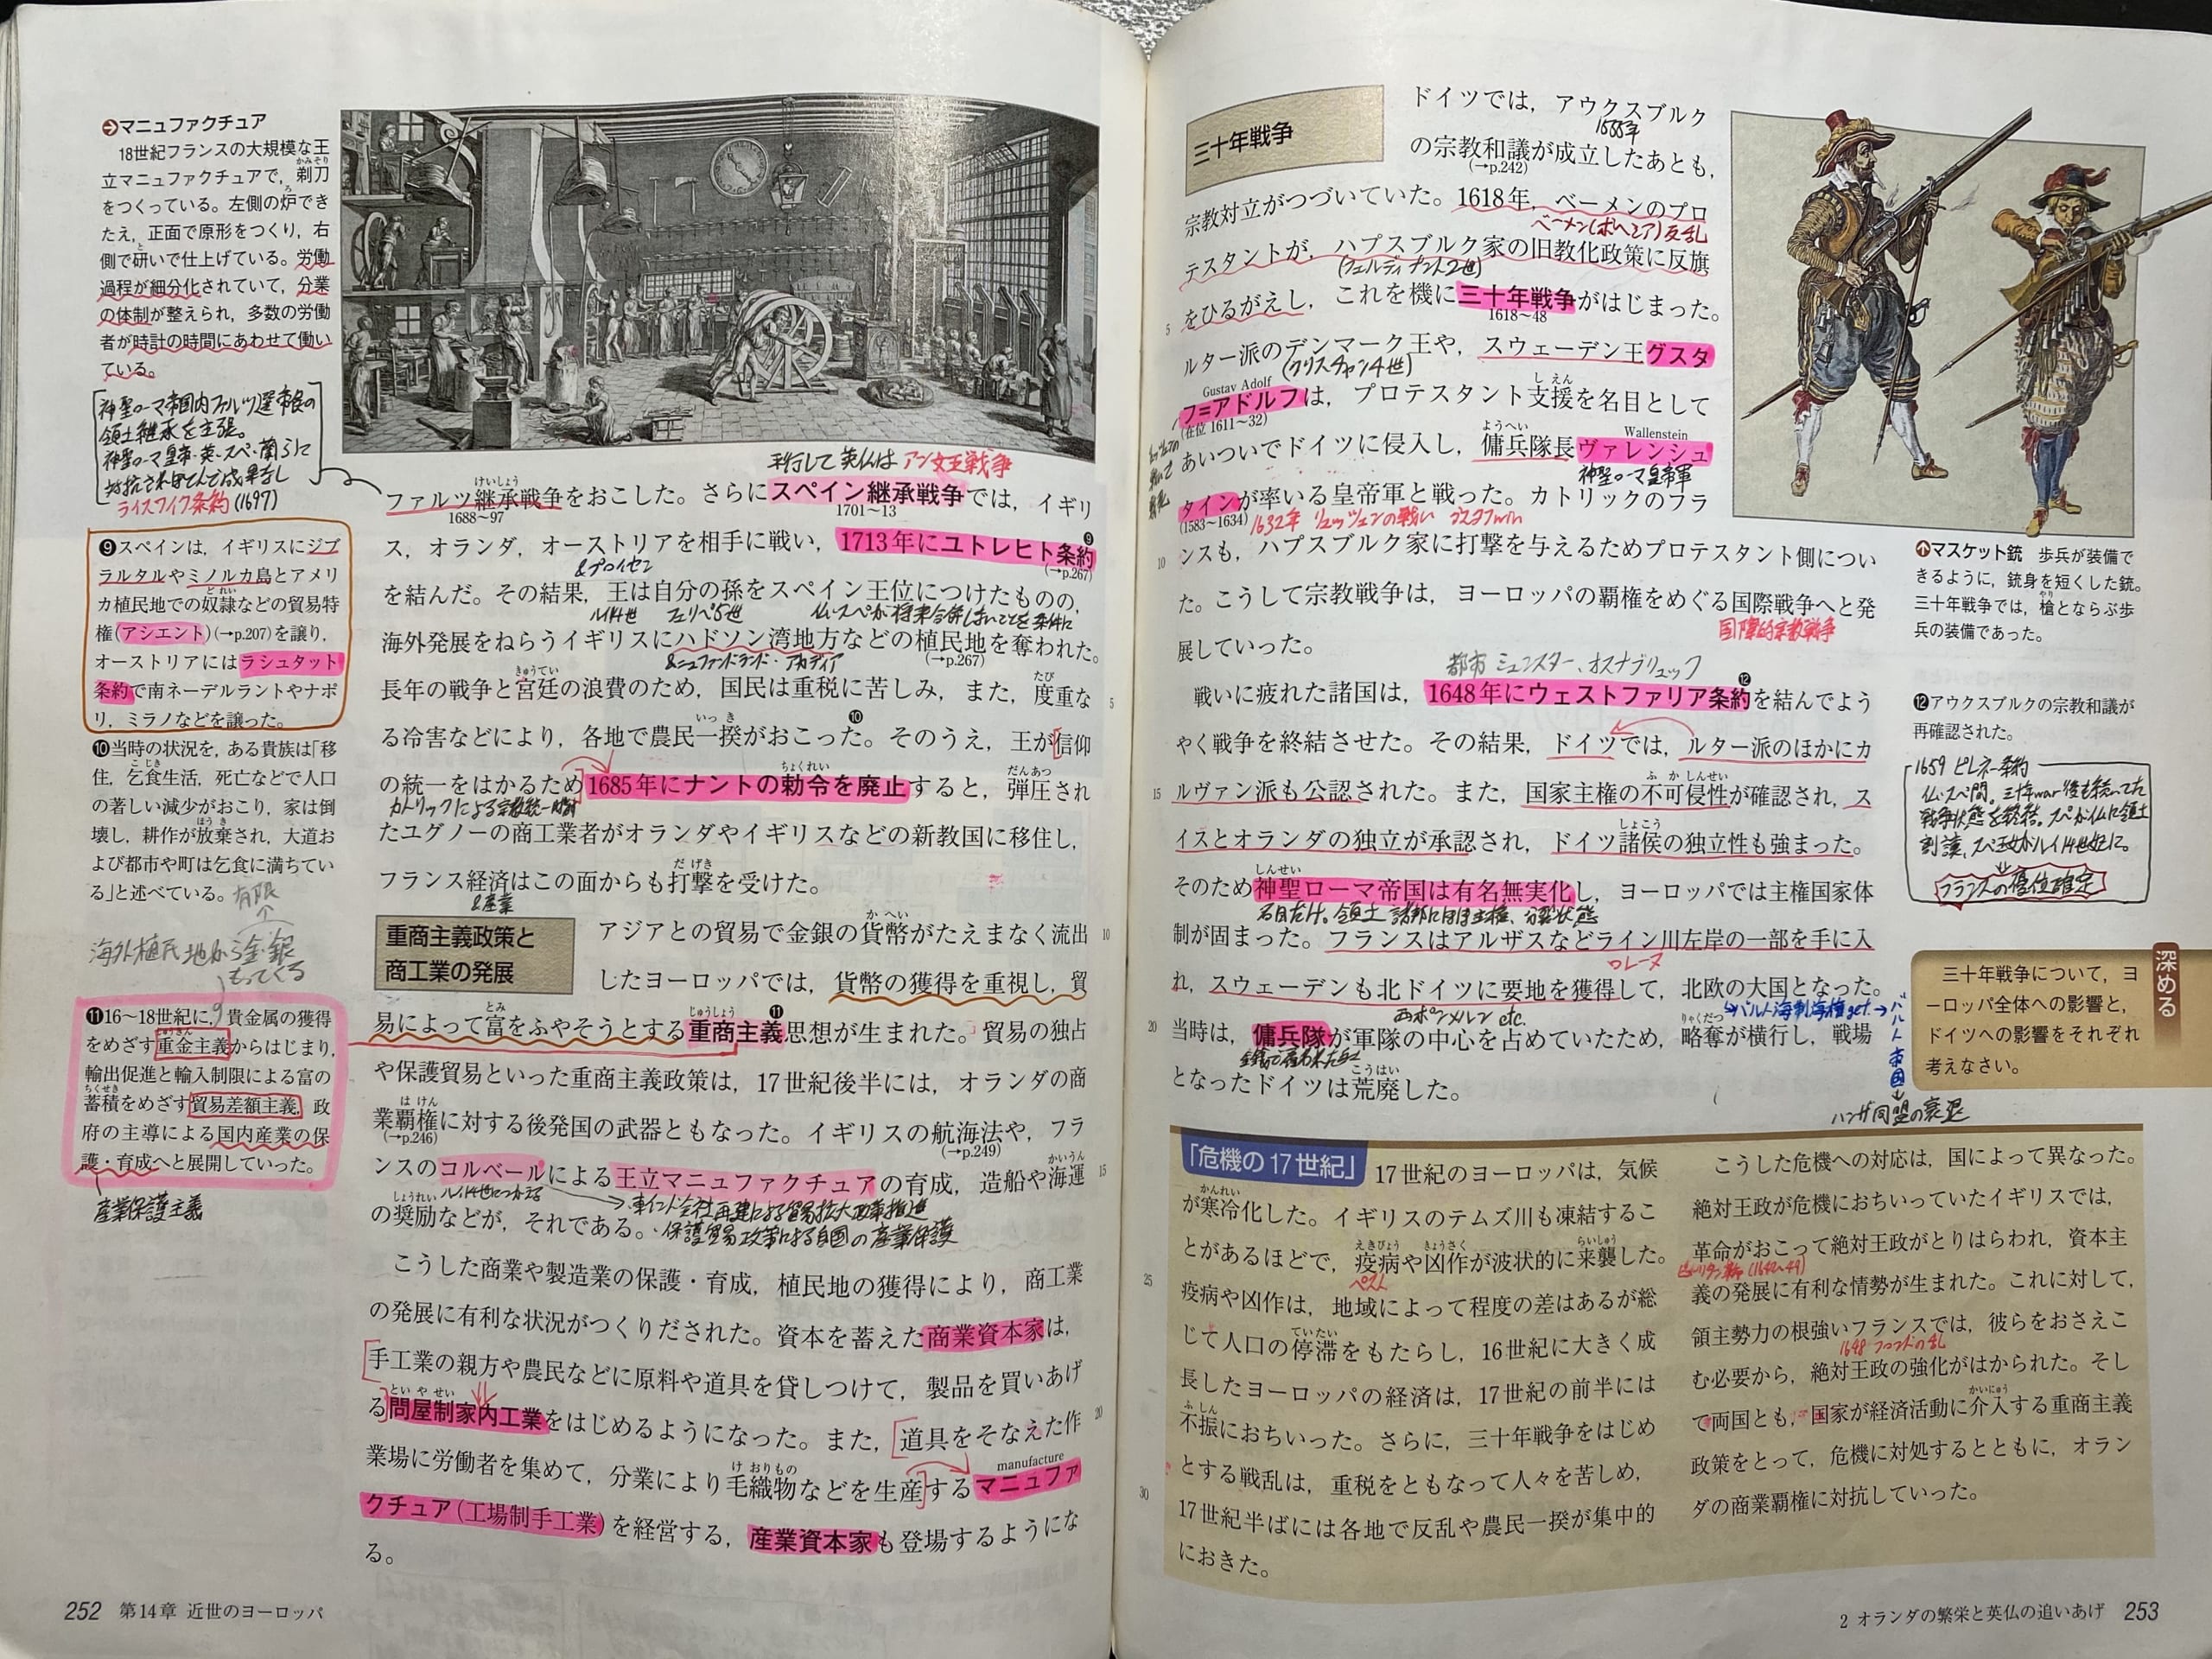 ➔マニュファクチュア
18世紀フランスの大規模な王
立マニュファクチュアで，剃刀
かみそり
をつくっている。左側の炉でき
ろ
たえ，正面で原形をつくり，右
側で研いで仕上げている。労働
と
過程が細分化されていて，分業
の体制が整えられ，多数の労働
者が時計の時間にあわせて働い
ている。
神聖ローマ帝国内ファルツ選帝侯の
領土継承を主張。
神聖ローマ皇帝・英・スペ・蘭らに
対抗されほとんど成果なし
ライスワイク条約(1697)
❾スペインは，イギリスにジブ
ラルタルやミノルカ島とアメリ
カ植民地での奴隷などの貿易特
どれい
権(アシエント)(→p.207)を譲り，
オーストリアにはラシュタット
条約で南ネーデルラントやナポ
リ，ミラノなどを譲った。
❿当時の状況を，ある貴族は「移
住，乞食生活，死亡などで人口
こじき
の著しい減少がおこり，家は倒
壊し，耕作が放棄され，大道お
ほうき
よび都市や町は乞食に満ちてい
る」と述べている。
有限
海外植民地から金・銀
もってくる
⓫16～18世紀に，貴金属の獲得
をめざす重金主義からはじまり，
じゅうきん
輸出促進と輸入制限による富の
蓄積をめざす貿易差額主義，政
ちくせき
府の主導による国内産業の保
護・育成へと展開していった。
産業保護主義
平行して英仏は アン女王戦争
ファルツ継承戦争をおこした。さらにスペイン継承戦争では，イギリ
けいしょう
1688～97
1701～13
ス，オランダ，オーストリアを相手に戦い，1713年にユトレヒト条約❾
&プロイセン
(→p.267)
を結んだ。その結果，王は自分の孫をスペイン王位につけたものの，
ルイ14世 フェリペ5世 仏・スペが将来合併しないことを条件に
海外発展をねらうイギリスにハドソン湾地方などの植民地を奪われた。
&ニューファンドランド・アカディア
(→p.267)
長年の戦争と宮廷の浪費のため，国民は重税に苦しみ，また，度重な
きゅうてい
たび
5
る冷害などにより，各地で農民一揆がおこった❿。そのうえ，王が信仰
いっき
の統一をはかるため1685年にナントの勅令を廃止すると，弾圧され
ちょくれい
だんあつ
カトリックによる宗教統一目指す
たユグノーの商工業者がオランダやイギリスなどの新教国に移住し，
フランス経済はこの面からも打撃を受けた。
だげき
&産業
重商主義政策と
商工業の発展
アジアとの貿易で金銀の貨幣がたえまなく流出
かへい
10
したヨーロッパでは，貨幣の獲得を重視し，貿
易によって富をふやそうとする重商主義⓫思想が生まれた。貿易の独占
とみ
じゅうしょう
や保護貿易といった重商主義政策は，17世紀後半には，オランダの商
業覇権に対する後発国の武器ともなった。イギリスの航海法や，フラ
はけん
(→p.246)
(→p.249)
ンスのコルベールによる王立マニュファクチュアの育成，造船や海運
かいうん
15
ルイ14世につかえる
→・東インド会社再建による貿易拡大政策推進
の奨励などが，それである。
しょうれい
・保護貿易政策による自国の産業保護
こうした商業や製造業の保護・育成，植民地の獲得により，商工業
の発展に有利な状況がつくりだされた。資本を蓄えた商業資本家は，
手工業の親方や農民などに原料や道具を貸しつけて，製品を買いあげ
る問屋制家内工業をはじめるようになった。また，道具をそなえた作
といやせい
20
業場に労働者を集めて，分業により毛織物などを生産するマニュファ
けおりもの
manufacture
クチュア(工場制手工業)を経営する，産業資本家も登場するようにな
る。
252 第14章 近世のヨーロッパ
三十年戦争
ドイツでは，アウクスブルク
1555年
の宗教和議が成立したあとも，
(→p.242)
宗教対立がつづいていた。1618年，ベーメンのプロ
ベーメン(ボヘミア)反乱
テスタントが，ハプスブルク家の旧教化政策に反旗
(フェルディナント2世)
をひるがえし，これを機に三十年戦争がはじまった。
1618～48
5
ルター派のデンマーク王や，スウェーデン王グスタ
(クリスチャン4世)
Gustav Adolf
フ=アドルフは，プロテスタント支援を名目として
(在位 1611～32)
しえん
あいついでドイツに侵入し，傭兵隊長ヴァレンシュ
ようへい
Wallenstein
神聖ローマ皇帝軍
タインが率いる皇帝軍と戦った。カトリックのフラ
(1583～1634)
1632年 リュッツェンの戦い グスタフwin
ンスも，ハプスブルク家に打撃を与えるためプロテスタント側につい
10
た。こうして宗教戦争は，ヨーロッパの覇権をめぐる国際戦争へと発
国際的宗教戦争
展していった。
都市 ミュンスター、オスナブリュック
戦いに疲れた諸国は，1648年にウェストファリア条約⓬を結んでよう
やく戦争を終結させた。その結果，ドイツでは，ルター派のほかにカ
ルヴァン派も公認された。また，国家主権の不可侵性が確認され，ス
ふかしんせい
15
イスとオランダの独立が承認され，ドイツ諸侯の独立性も強まった。
しょこう
そのため神聖ローマ帝国は有名無実化し，ヨーロッパでは主権国家体
しんせい
名目だけ。領土 諸邦にほぼ主権、分裂状態
制が固まった。フランスはアルザスなどライン川左岸の一部を手に入
ロレーヌ
れ，スウェーデンも北ドイツに要地を獲得して，北欧の大国となった。
西ポンメルン etc.
→バルト海制海権get.→バルト帝国
当時は，傭兵隊が軍隊の中心を占めていたため，略奪が横行し，戦場
りゃくだつ
20
となったドイツは荒廃した。
こうはい
ハンザ同盟の衰退
➔マスケット銃 歩兵が装備で
きるように，銃身を短くした銃。
三十年戦争では，槍とならぶ歩
やり
兵の装備であった。
⓬アウクスブルクの宗教和議が
再確認された。
1659 ピレネー条約
仏・スペ間。三十年war後も続いてた
戦争状態を終結。スペが仏に領土
割譲、スペ王女がルイ14世妃に。
フランスの優位確定
深める
三十年戦争について，ヨ
ーロッパ全体への影響と，
ドイツへの影響をそれぞれ
考えなさい。
「危機の17世紀」
17世紀のヨーロッパは，気候
が寒冷化した。イギリスのテムズ川も凍結するこ
かんれい
とがあるほどで，疫病や凶作が波状的に来襲した。
えきびょう
きょうさく
らいしゅう
ペスト
25
疫病や凶作は，地域によって程度の差はあるが総
じて人口の停滞をもたらし，16世紀に大きく成
ていたい
長したヨーロッパの経済は，17世紀の前半には
不振におちいった。さらに，三十年戦争をはじめ
ふしん
とする戦乱は，重税をともなって人々を苦しめ，
30
17世紀半ばには各地で反乱や農民一揆が集中的
におきた。
こうした危機への対応は，国によって異なった。
絶対王政が危機におちいっていたイギリスでは，
革命がおこって絶対王政がとりはらわれ，資本主
ピューリタン革命(1642～49)
義の発展に有利な情勢が生まれた。これに対して，
領主勢力の根強いフランスでは，彼らをおさえこ
1648 フロンドの乱
む必要から，絶対王政の強化がはかられた。そし
て両国とも，国家が経済活動に介入する重商主義
かいにゅう
政策をとって，危機に対処するとともに，オラン
ダの商業覇権に対抗していった。
2 オランダの繁栄と英仏の追いあげ 253